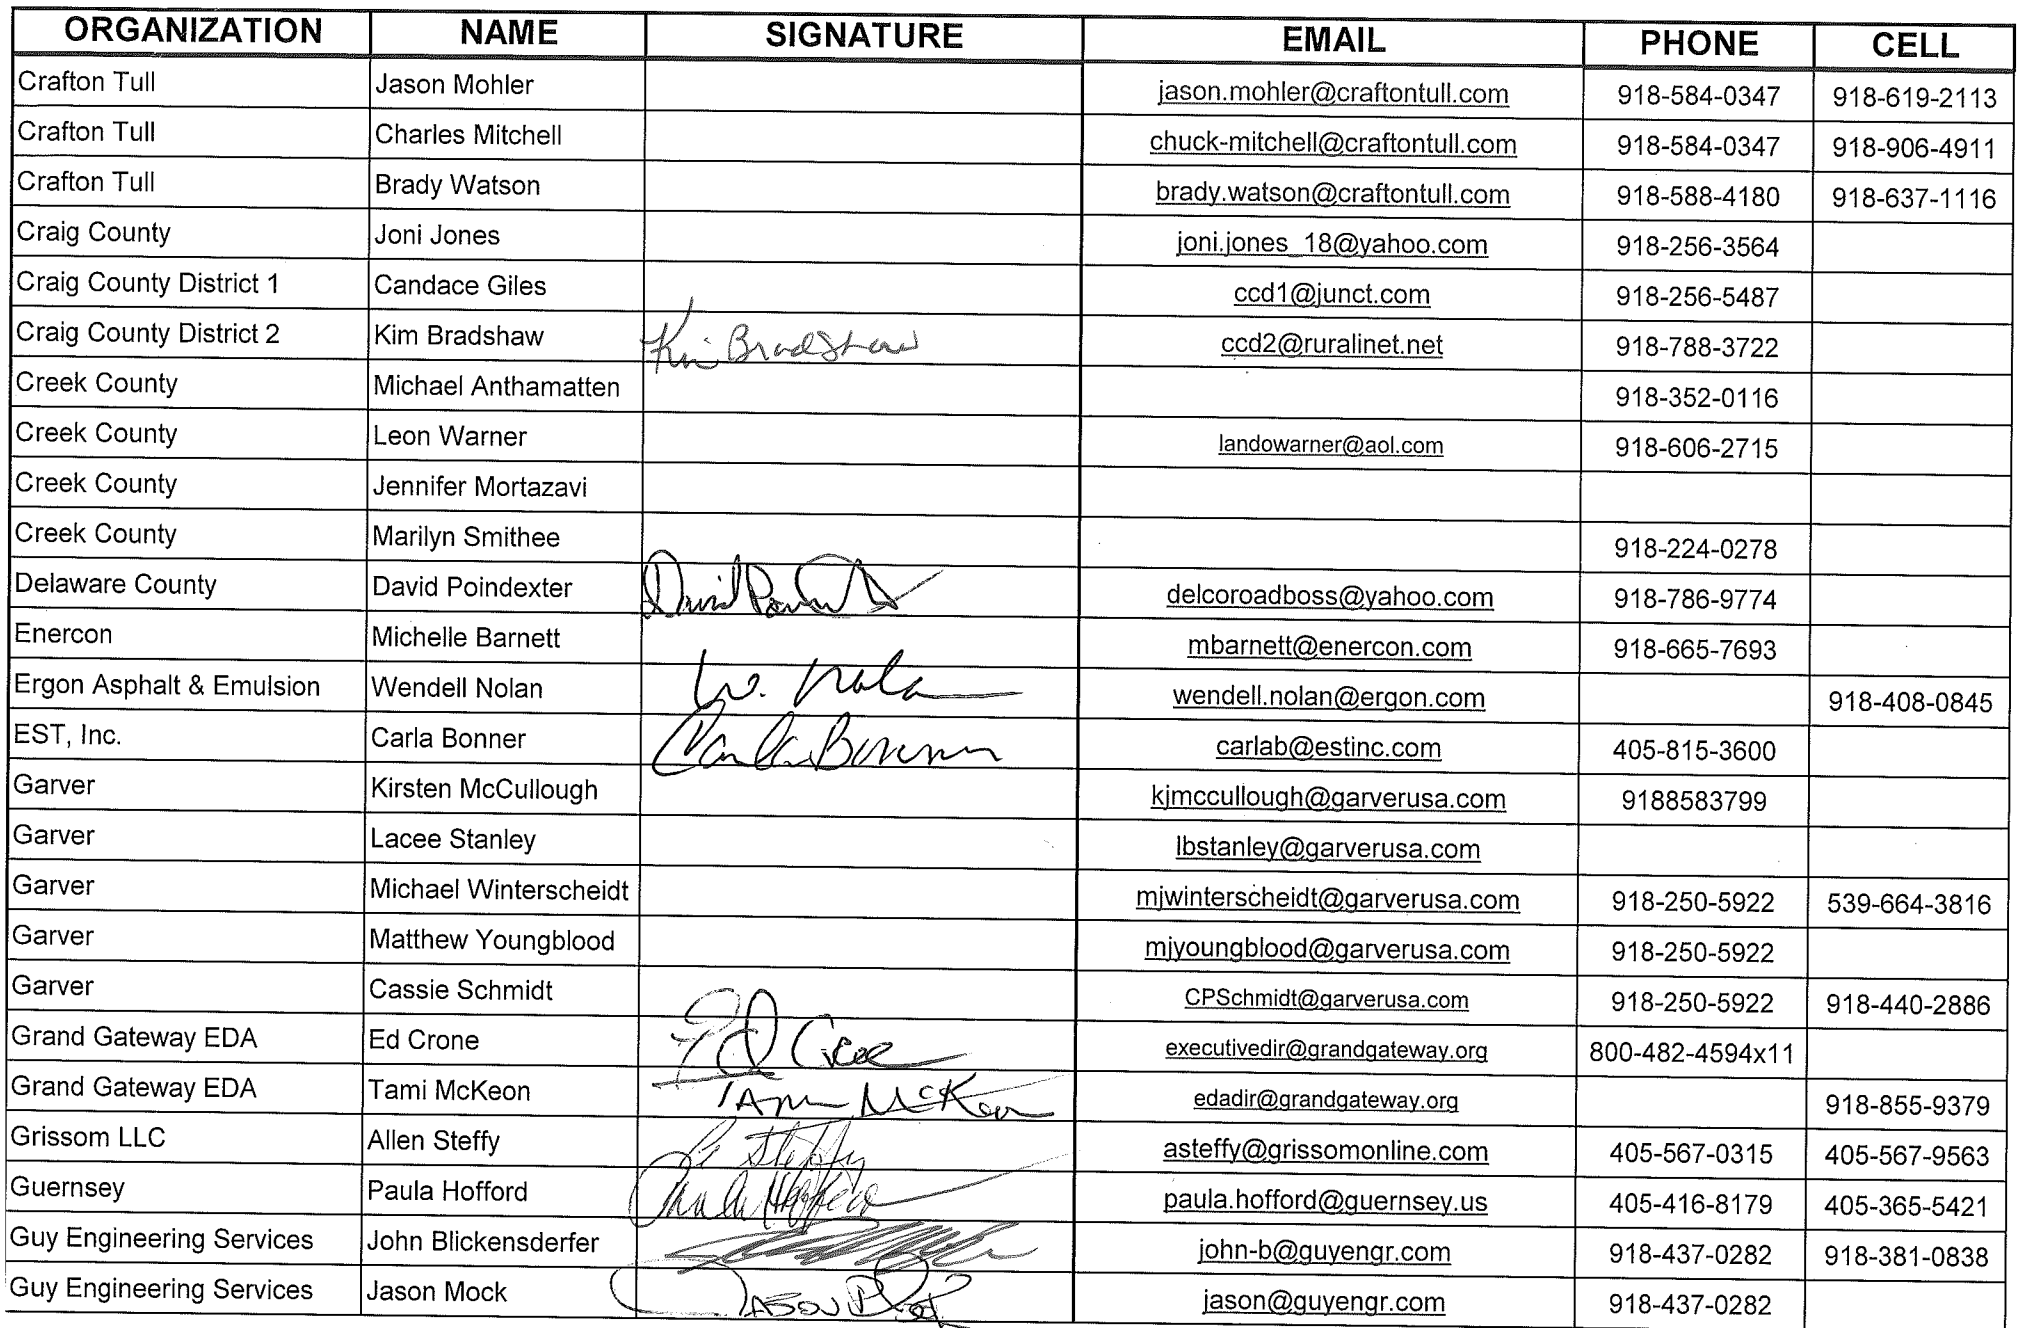 ORGANIZATION NAME SIGNATURE EMAIL PHONE CELL
Crafton Tull Jason Mohler jason.mohler@craftontull.com 918-584-0347 918-619-2113
Crafton Tull Charles Mitchell chuck-mitchell@craftontull.com 918-584-0347 918-906-4911
Crafton Tull Brady Watson brady.watson@craftontull.com 918-588-4180 918-637-1116
Craig County Joni Jones joni.jones_18@yahoo.com 918-256-3564
Craig County District 1 Candace Giles ccd1@junct.com 918-256-5487
Craig County District 2 Kim Bradshaw Kim Bradshaw ccd2@ruralinet.net 918-788-3722
Creek County Michael Anthamatten 918-352-0116
Creek County Leon Warner landowarner@aol.com 918-606-2715
Creek County Jennifer Mortazavi
Creek County Marilyn Smithee 918-224-0278
Delaware County David Poindexter David delcoroadboss@yahoo.com 918-786-9774
Enercon Michelle Barnett mbarnett@enercon.com 918-665-7693
Ergon Asphalt & Emulsion Wendell Nolan W. Nolan wendell.nolan@ergon.com 918-408-0845
EST, Inc. Carla Bonner Carla Bonner carlab@estinc.com 405-815-3600
Garver Kirsten McCullough kjmccullough@garverusa.com 9188583799
Garver Lacee Stanley lbstanley@garverusa.com
Garver Michael Winterscheidt mjwinterscheidt@garverusa.com 918-250-5922 539-664-3816
Garver Matthew Youngblood mjyoungblood@garverusa.com 918-250-5922
Garver Cassie Schmidt CPSchmidt@garverusa.com 918-250-5922 918-440-2886
Grand Gateway EDA Ed Crone Ed Crone executivedir@grandgateway.org 800-482-4594x11
Grand Gateway EDA Tami McKeon Tami McKeon edadir@grandgateway.org 918-855-9379
Grissom LLC Allen Steffy Steffy asteffy@grissomonline.com 405-567-0315 405-567-9563
Guernsey Paula Hofford Paula Hofford paula.hofford@guernsey.us 405-416-8179 405-365-5421
Guy Engineering Services John Blickensderfer john-b@guyengr.com 918-437-0282 918-381-0838
Guy Engineering Services Jason Mock Jason jason@guyengr.com 918-437-0282